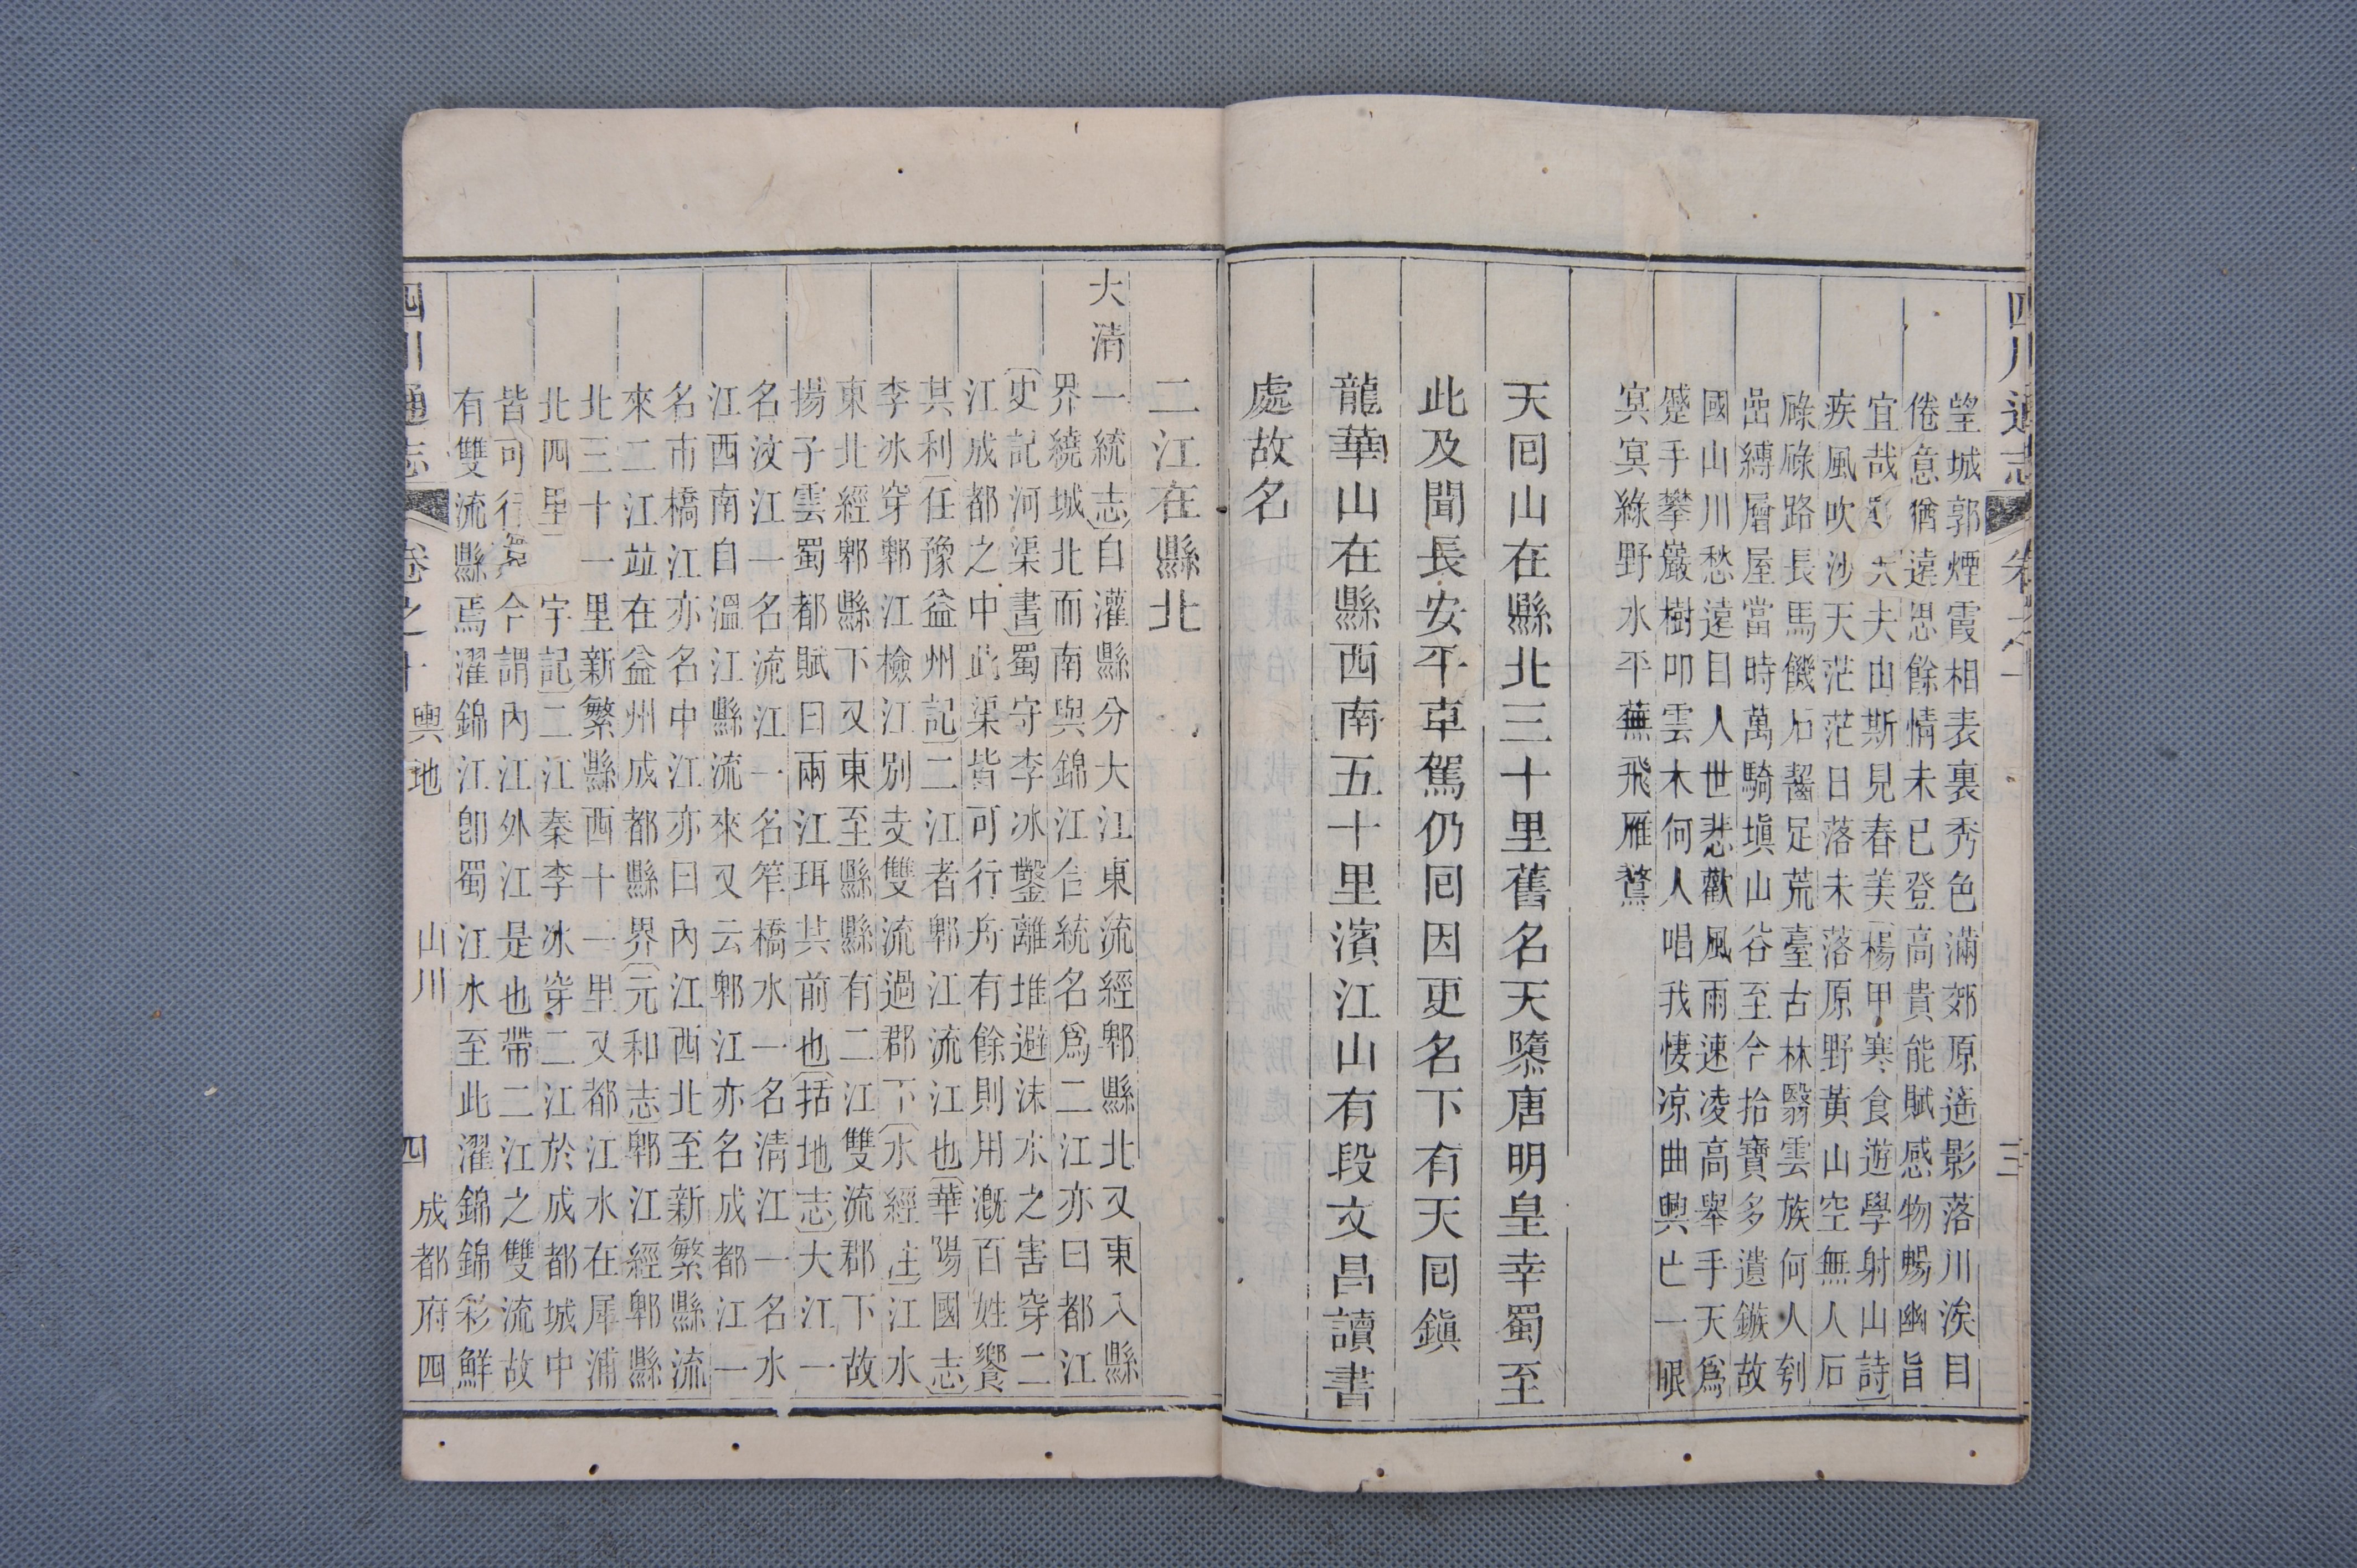 四川通志
卷之十
三
望城郭煙霞相表裏秀色滿郊原遙影落川涘目
倦意猶遠思餘情未已登高貴能賦感物暢幽旨
宜哉大夫山斯見春美楊甲寒食遊學射山詩
疾風吹沙天茫茫日落未落原野黃山空無人石
碌碌路長馬饑石齧足荒臺古林翳雲族何人刳
嵒縛層屋當時萬騎塡山谷至今拾寶多遺鏃故
國山川愁遠目人世悲歡風雨速凌高舉手天爲
蹙手攀巖樹叩雲木何人唱我悽涼曲興亡一眼
㝠㝠綠野水平蕪飛雁鶩
天囘山在縣北三十里舊名天隳唐明皇幸蜀至
此及聞長安平車駕仍囘因更名下有天囘鎭
龍華山在縣西南五十里濱江山有段文昌讀書
處故名
二江在縣北
大清一統志自灌縣分大江東流經郫縣北又東入縣
界繞城北而南與錦江合統名爲二江亦曰都江
史記河渠書蜀守李冰鑿離堆避沬水之害穿二
江成都之中此渠皆可行舟有餘則用漑百姓饗
其利任豫益州記二江者郫江流江也華陽國志
李冰穿郫江檢江别支雙流過郡下水經注江水
東北經郫縣下又東至縣縣有二江雙流郡下故
揚子雲蜀都賦曰兩江珥其前也括地志大江一
名汶江一名流江一名笮橋水一名清江一名水
江西南自溫江縣流來又云郫江亦名成都江一
名市橋江亦名中江亦曰內江西北至新繁縣流
來二江竝在益州成都縣界元和志郫江經郫縣
北三十一里新繁縣西十一里又都江水在犀浦
北四里宇記二江秦李冰穿二江於成都城中
皆可行今謂內江外江是也帶二江之雙流故
有雙流縣焉濯錦江卽蜀江水至此濯錦錦彩鮮
四川通志
卷之十
輿地
山川
四
成都府四